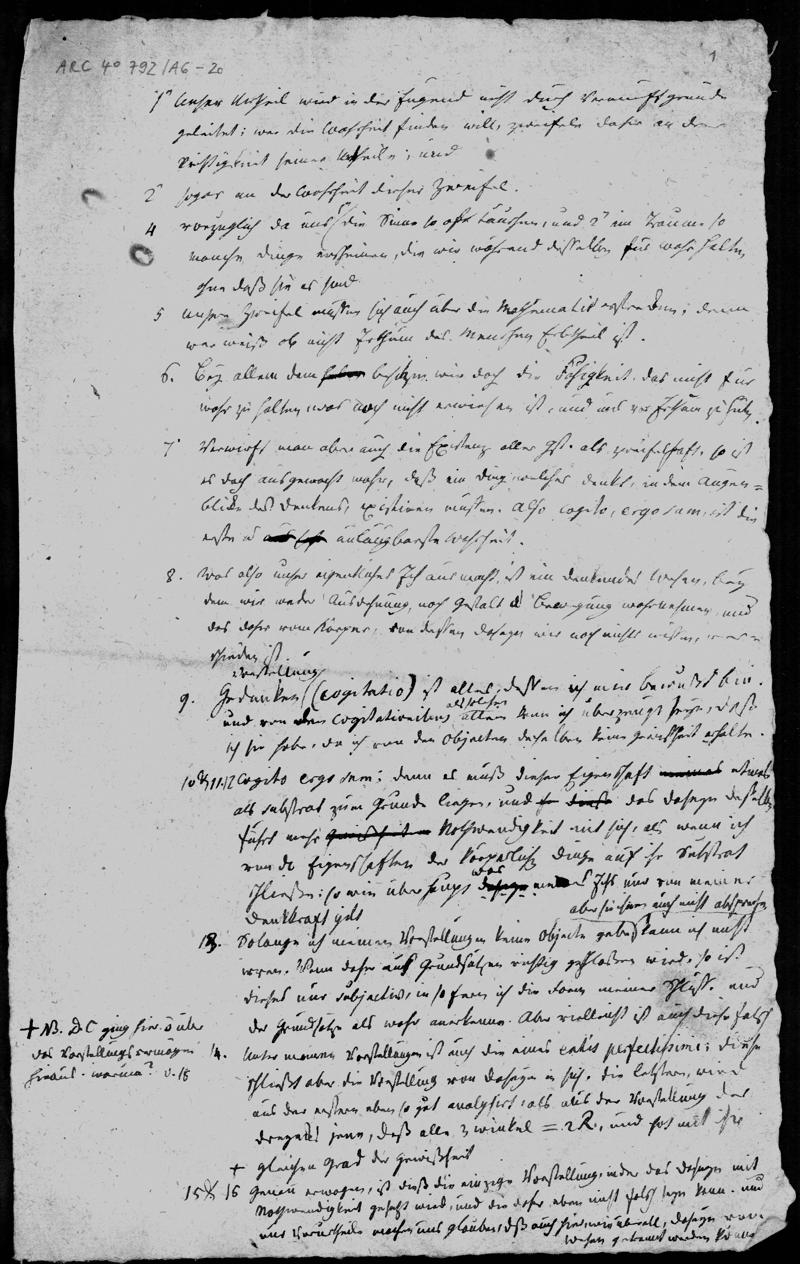 ARC 4° 792/A6-20
1
1° Unser Urtheil wird in der Jugend nicht durch Vernunftgründe
geleitet; wer die Wahrheit finden will, zweifele daher an der
Richtigkeit seiner Urtheile; und
2° sogar an der Wahrheit dieser Zweifel.
4 vorzüglich da uns 1° die Sinne so oft täuschen, und 2° im Traume so
manche Dinge erscheinen, die wir während desselben für wahr halten,
ohne daß sie es sind.
5 Unsere Zweifel müssen sich auch über die Mathematik erstrecken; denn
wer weiß ob nicht Irrthum des Menschen Erbtheil ist.
6. Bey allem dem besitzen wir doch die Fähigkeit, das nicht für
wahr zu halten, was noch nicht erwiesen ist, und uns vor Irrthum zu hüten.
7 Verwirft man aber auch die Existenz aller als zweifelhaft, so ist
es doch ausgemacht wahr, daß ein Ding welches denkt, in dem Augen=
blicke des Denkens, existiren müsse. Also cogito, ergo sum, ist die
erste u unläugbarste Wahrheit.
8. Was also unser eigentliches Ich ausmacht, ist ein denkendes Wesen, bey
dem wir weder Ausdehnung, noch Gestalt Bewegung wahrnehmen, und
das daher vom Körper, von dessen Daseyn wir noch nichts wissen, ver-
schieden ist.
Vorstellung
9. Gedanken (cogitatio) ist alles, dessen ich mir bewußt bin.
als solchen
und von den cogitationibus allein kan ich überzeugt seyn, daß
ich sie habe, da ich von den Objecten derselben keine Gewißheit erhalte.
10 & 11.12 Cogito ergo sum; denn es muß dieser Eigenschaft etwas
als Substrat zum Grunde liegen, und das Daseyn desselben
führt mehr Nothwendigkeit mit sich, als wenn ich
von den Eigenschaften der körperlichen Dinge auf ihr Substrat
schließe; so wie überhaupt was Ichs nur von meiner
Denkkraft gilt
aber sie ihnen auch nicht abspreche
13. Solange ich meinen Vorstellungen keine Objecte gebe, kann ich nicht
irren. Wenn daher aus Grundsätzen richtig geschlossen wird, so ist
dieses nur subjectiv, in so fern ich die Form meiner Schlüsse und
der Grundsätze als wahr anerkenne. Aber vielleicht ist auch diese falsch
+ NB. DC ging hier über
das Vorstellungsvermögen
hinaus. warum? v. 18
14. Unter meinen Vorstellungen ist auch die eines entis perfectissimi; diese
schließt aber die Vorstellung von Daseyn in sich, die letztere, wird
aus der ersteren eben so gut analysirt, als aus der Vorstellung des
Dreyecks jene, daß alle 3 Winkel = 2R., und hat mit ihr
+ gleichen Grad der Gewißheit
15 & 16 Genau erwogen, ist dieß die einzige Vorstellung, in der das Daseyn mit
Nothwendigkeit gesetzt wird, und die daher eben nicht falsch seyn kann. und
nur Vorurtheile machen uns glauben, daß auch hier, wie überall, Daseyn vom
Wesen getrennt werden könne